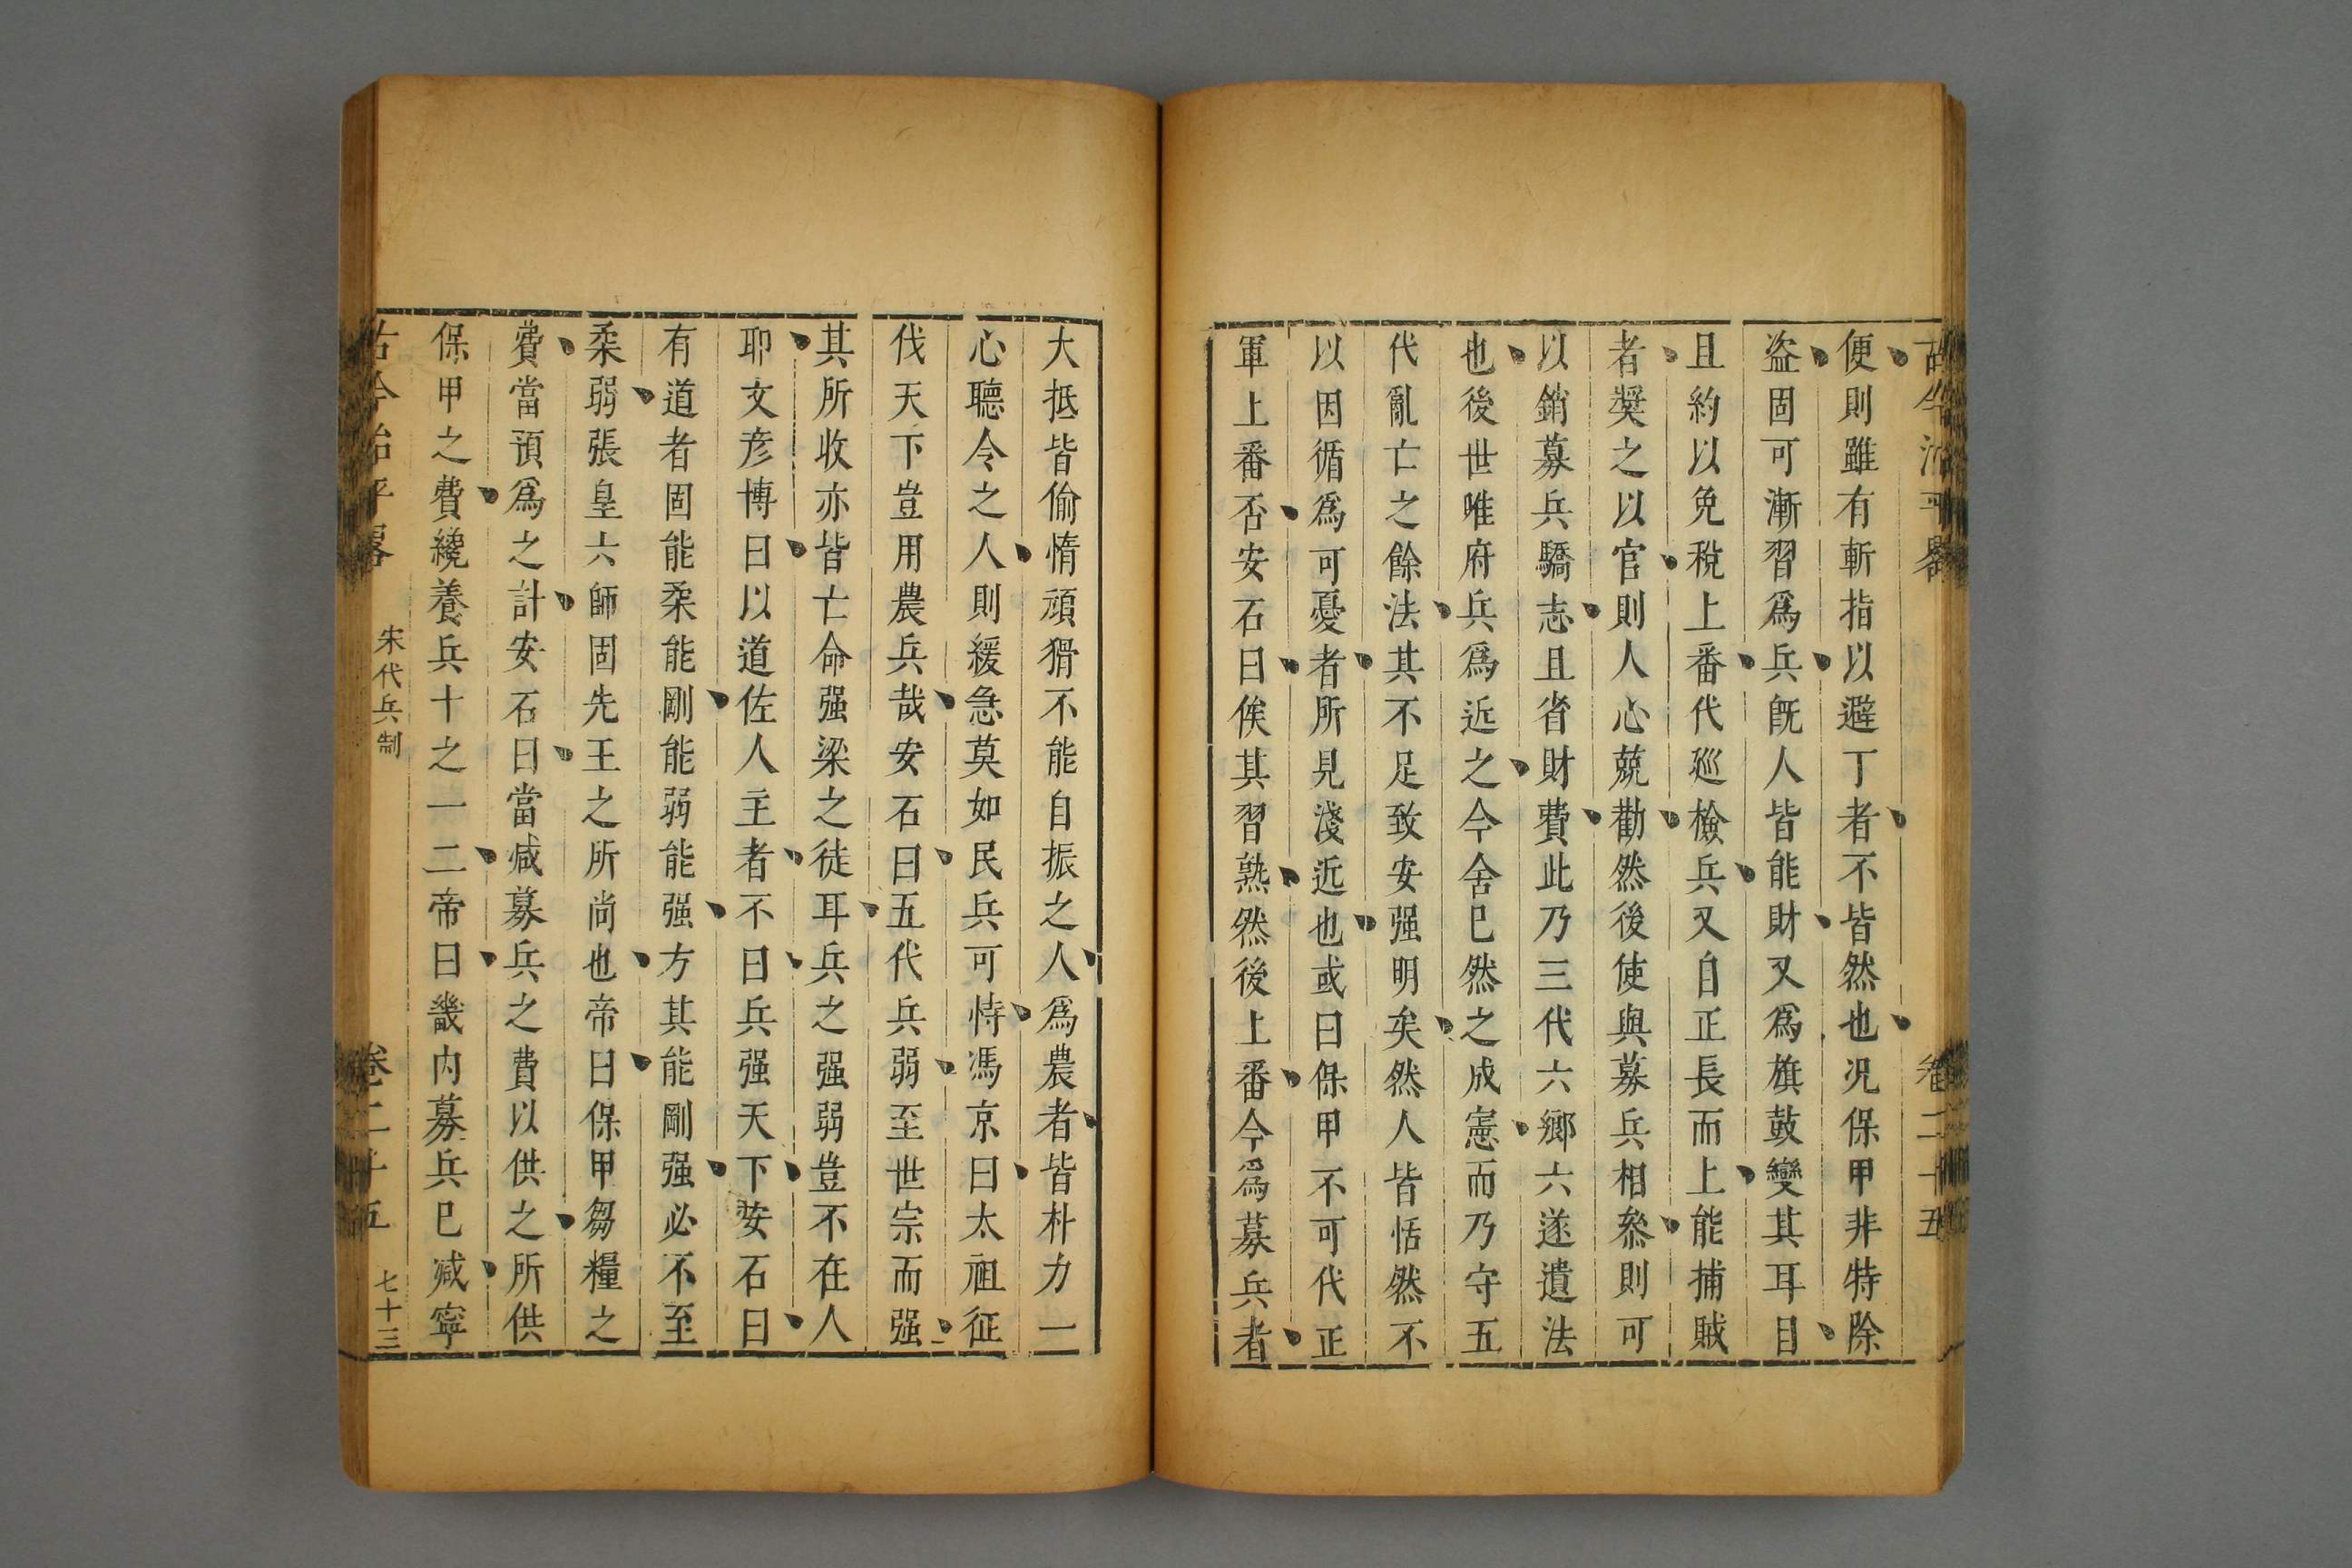 古今治平畧 卷二十五
便則雖有斬指以避丁者不皆然也况保甲非特除
盗固可漸習爲兵旣人皆能財又爲旗鼓變其耳目
且約以免稅上番代廵檢兵又自正長而上能捕賊
者奬之以官則人心兢勸然後使與募兵相叅則可
以銷募兵驕志且省財費此乃三代六鄉六遂遺法
也後世唯府兵爲近之今舍巳然之成憲而乃守五
代亂亡之餘法其不足致安强明矣然人皆恬然不
以因循爲可憂者所見淺近也或曰保甲不可代正
軍上番否安石曰俟其習熟然後上番今爲募兵者
大抵皆偷惰頑猾不能自振之人爲農者皆朴力一
心聽令之人則緩急莫如民兵可恃馮京曰太祖征
伐天下豈用農兵哉安石曰五代兵弱至世宗而强
其所收亦皆亡命强梁之徒耳兵之强弱豈不在人
耶文彦博曰以道佐人主者不曰兵强天下安石曰
有道者固能柔能剛能弱能强方其能剛强必不至
柔弱張皇六師固先王之所尚也帝曰保甲芻糧之
費當預爲之計安石曰當减募兵之費以供之所供
保甲之費纔養兵十之一二帝曰畿内募兵巳减寧
古今治平畧 宋代兵制 卷二十五 七十三